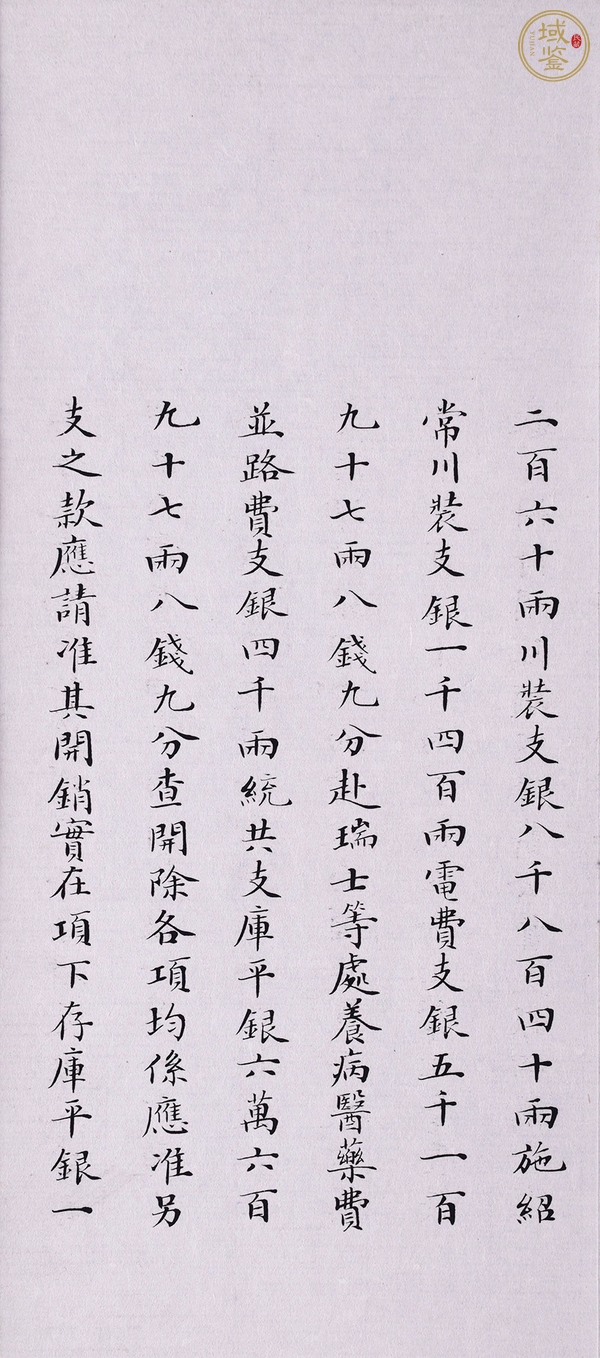 域鉴
YUJIAN
二百六十兩川裝支銀八千八百四十兩施紹
常川裝支銀一千四百兩電費支銀五千一百
九十七兩八錢九分赴瑞士等處養病醫藥費
並路費支銀四千兩統共支庫平銀六萬六百
九十七兩八錢九分查開除各項均係應准另
支之款應請准其開銷實在項下存庫平銀一